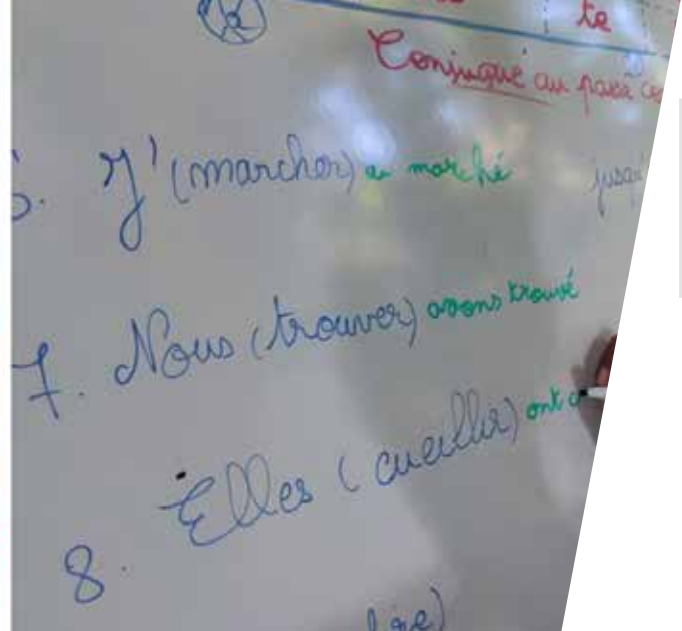 te
Conjugué au passé
6. J' (marcher) ai marché jusqu'
7. Nous (trouver) avons trouvé
8. Elles (cueillir) ont c
lire)